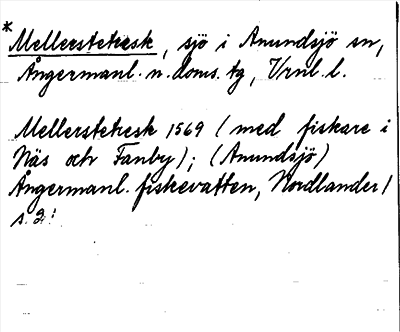 * Mellersteträsk, sjö i Anundsjö sn,
Ångermanl. n. doms. tg, Vrnl. l.
Mellerstetresk 1569 (med fiskare i
Näs och Fanby); (Anundsjö)
Ångermanl. fiskevatten, Nordlander /
s. 2: